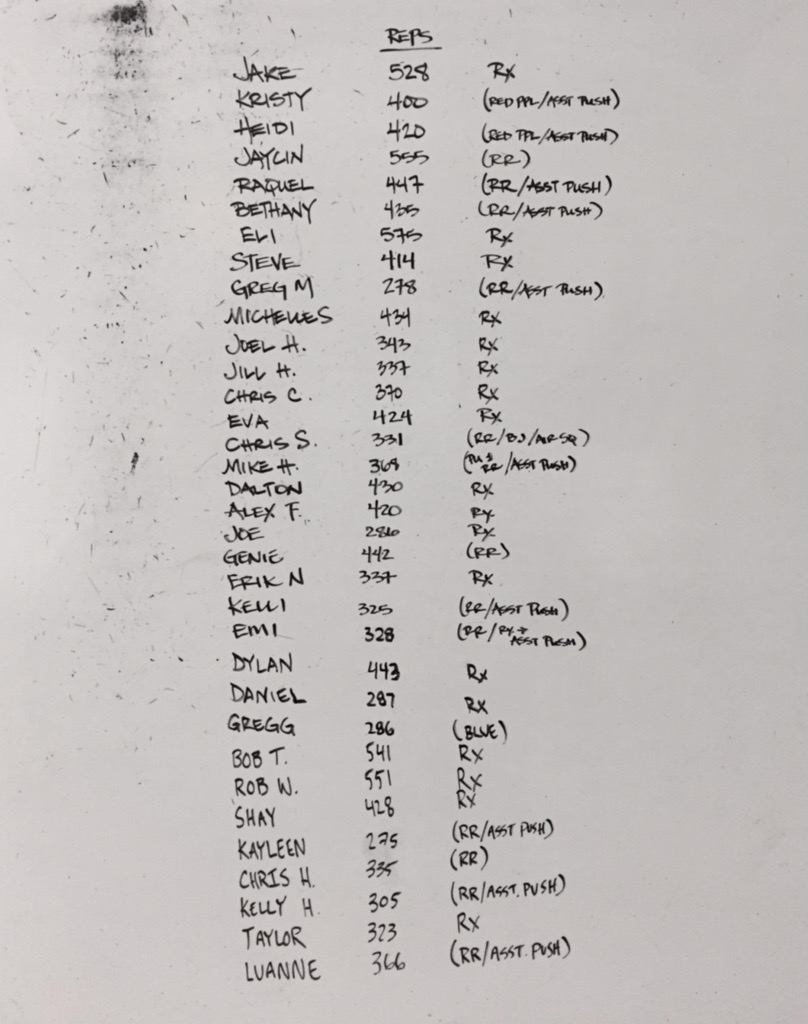 REPS
JAKE 528 Rx
KRISTY 400 (RED PPL/ASST PUSH)
HEIDI 420 (RED PPL/ASST PUSH)
JAYLIN 555 (RR)
RAQUEL 447 (RR/ASST PUSH)
BETHANY 435 (RR/ASST PUSH)
ELI 575 Rx
STEVE 414 Rx
GREG M 278 (RR/ASST PUSH)
MICHELLE S 434 Rx
JOEL H. 343 Rx
JILL H. 337 Rx
CHRIS C. 370 Rx
EVA 424 Rx
CHRIS S. 331 (RR/BJ/AIR SQ)
MIKE H. 369 RR/ASST PUSH)
DALTON 430 Rx
ALEX F. 420 Rx
JOE 286 Rx
GENIE 442 (RR)
ERIK N 337 Rx
KELLI 325 (RR/ASST PUSH)
EMI 328 (RR/Rx + ASST PUSH)
DYLAN 443 Rx
DANIEL 287 Rx
GREGG 286 (BLUE)
BOB T. 541 Rx
ROB W. 551 Rx
SHAY 428 Rx
KAYLEEN 275 (RR/ASST PUSH)
CHRIS H. 335 (RR)
KELLY H. 305 (RR/ASST. PUSH)
TAYLOR 323 Rx
LUANNE 366 (RR/ASST. PUSH)